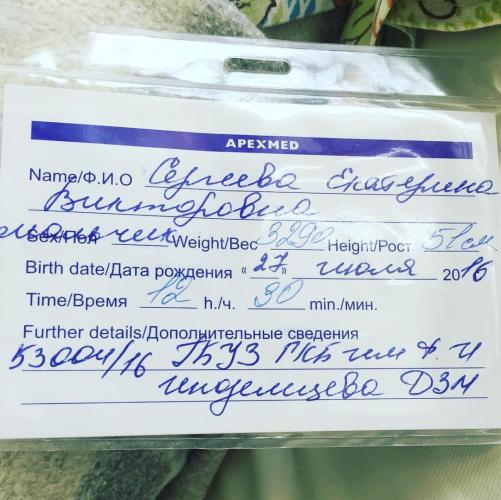 APEXMED
Name/Ф.И.О Сергеева Екатерина
Викторовна
Sex/Пол мальчик Weight/Вес 3290 Height/Рост 51 см
Birth date/Дата рождения « 27 » июля 2016
Time/Время 12 h./ч. 30 min./мин.
Further details/Дополнительные сведения
53004/16 ГБУЗ ГКБ им Ф. И
Иноземцева ДЗМ